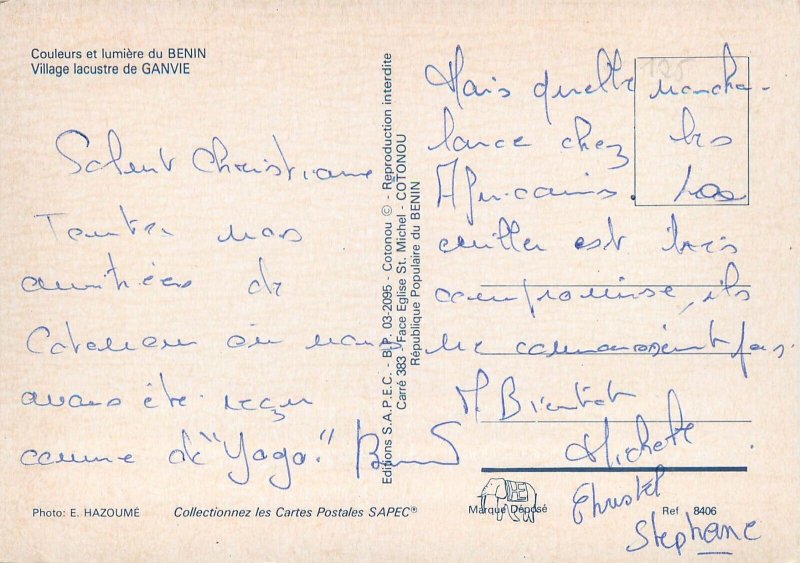 Couleurs et lumière du BENIN
Village lacustre de GANVIE
Salut Christiane
Toutes nos
amitiées de
Cotonou où nous
avons été reçu
comme de "Yaga."
Editions S.A.P.E.C. - B.P. 03-2095 - Cotonou © - Reproduction interdite
Carré 383 - Face Eglise St. Michel - COTONOU
République Populaire du BENIN
125
Mais quelle noncha-
lance chez les
Africains. La
est très
compromise, ils
ne connaissent pas.
A Bientôt
Michelle
Christel
Stephane
Photo: E. HAZOUMÉ
Collectionnez les Cartes Postales SAPEC®
Marque Déposé
Ref 8406